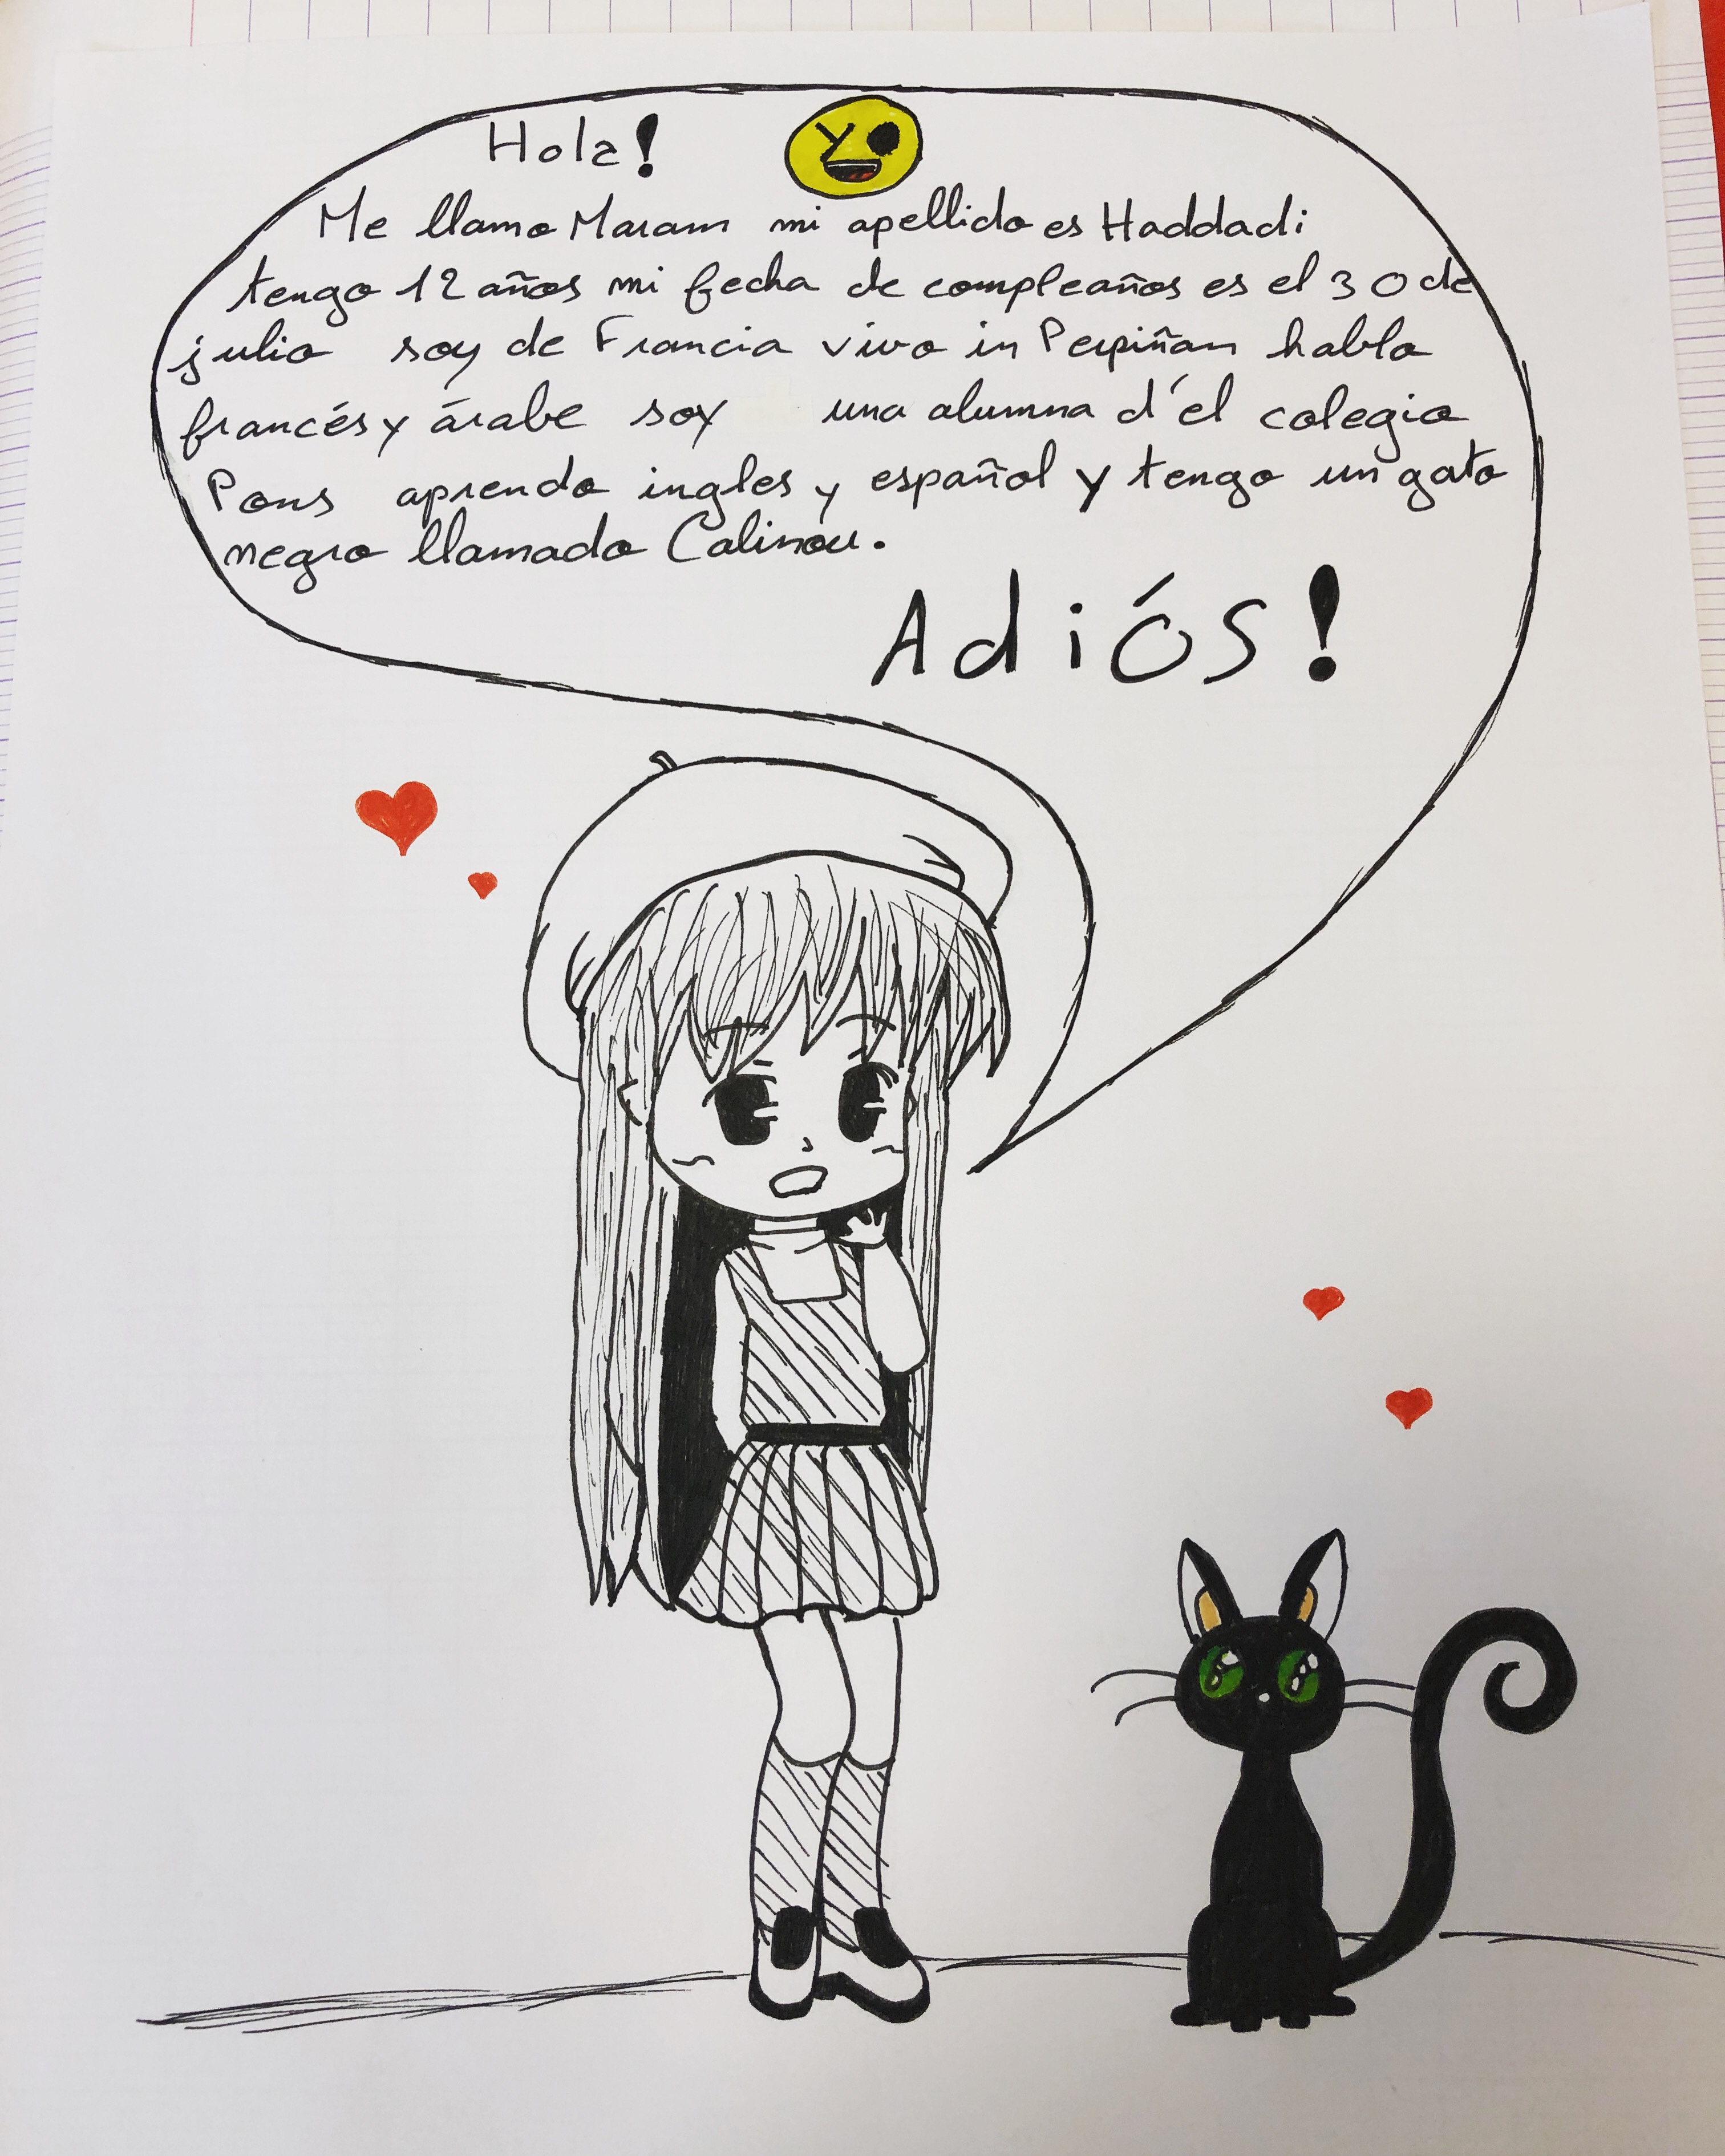 Hola!
Me llamo Maram mi apellido es Haddadi
tengo 12 años mi fecha de compleaños es el 30 de
julio soy de Francia vivo in Perpiñan hablo
francés y árabe soy una alumna d'él colegio
Pons aprendo ingles y español y tengo un gato
negro llamado Calinou.
Adiós!